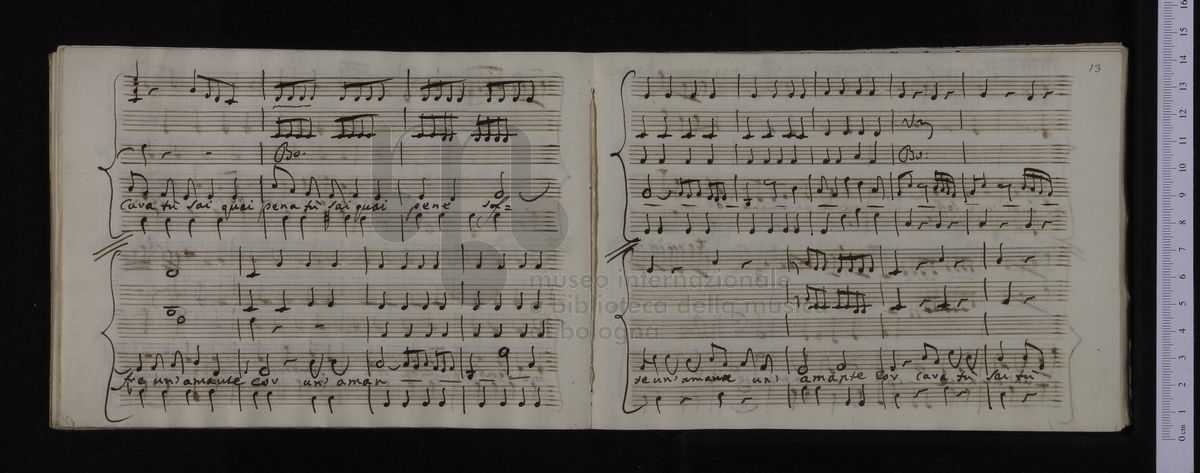 13
Bo.
cara tù sai quai pena tù sai quai pene sof=
fre un' amante cor un' aman
Vni
Bo:
te un' amante un' amante cor cara tù sai tù
museo internazionale
e biblioteca della musica
bologna
0 cm 1 2 3 4 5 6 7 8 9 10 11 12 13 14 15 16